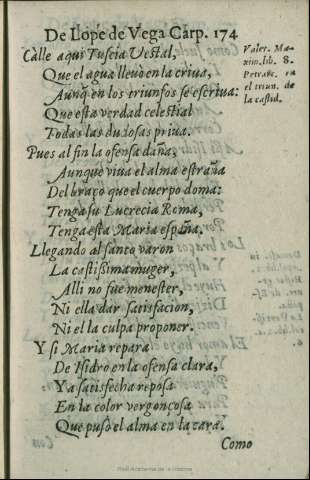 De Lope de Vega Carp. 174
Calle aqui Tuscia Vestal,
Que el agua lleuò en la criua,
Aunq̃ en los triunfos se escriua:
Que esta verdad celestial
Todas las dudosas priua.
Pues al fin la ofensa daña,
Aunque viua el alma estraña
Del braço que el cuerpo doma:
Tenga su Lucrecia Roma,
Tenga esta Maria españa.
Llegando al santo varon
La castissima muger,
Alli no fue menester,
Ni ella dar satisfacion,
Ni el la culpa proponer.
Y si Maria repara
De Isidro en la ofensa clara,
Ya satisfecha reposa
En la color vergonçosa
Que puso el alma en la cara.
Como
Valer. Ma-
xim. lib. 8.
Petrarc. en
el triun. de
la castid.
Real Academia de la Historia